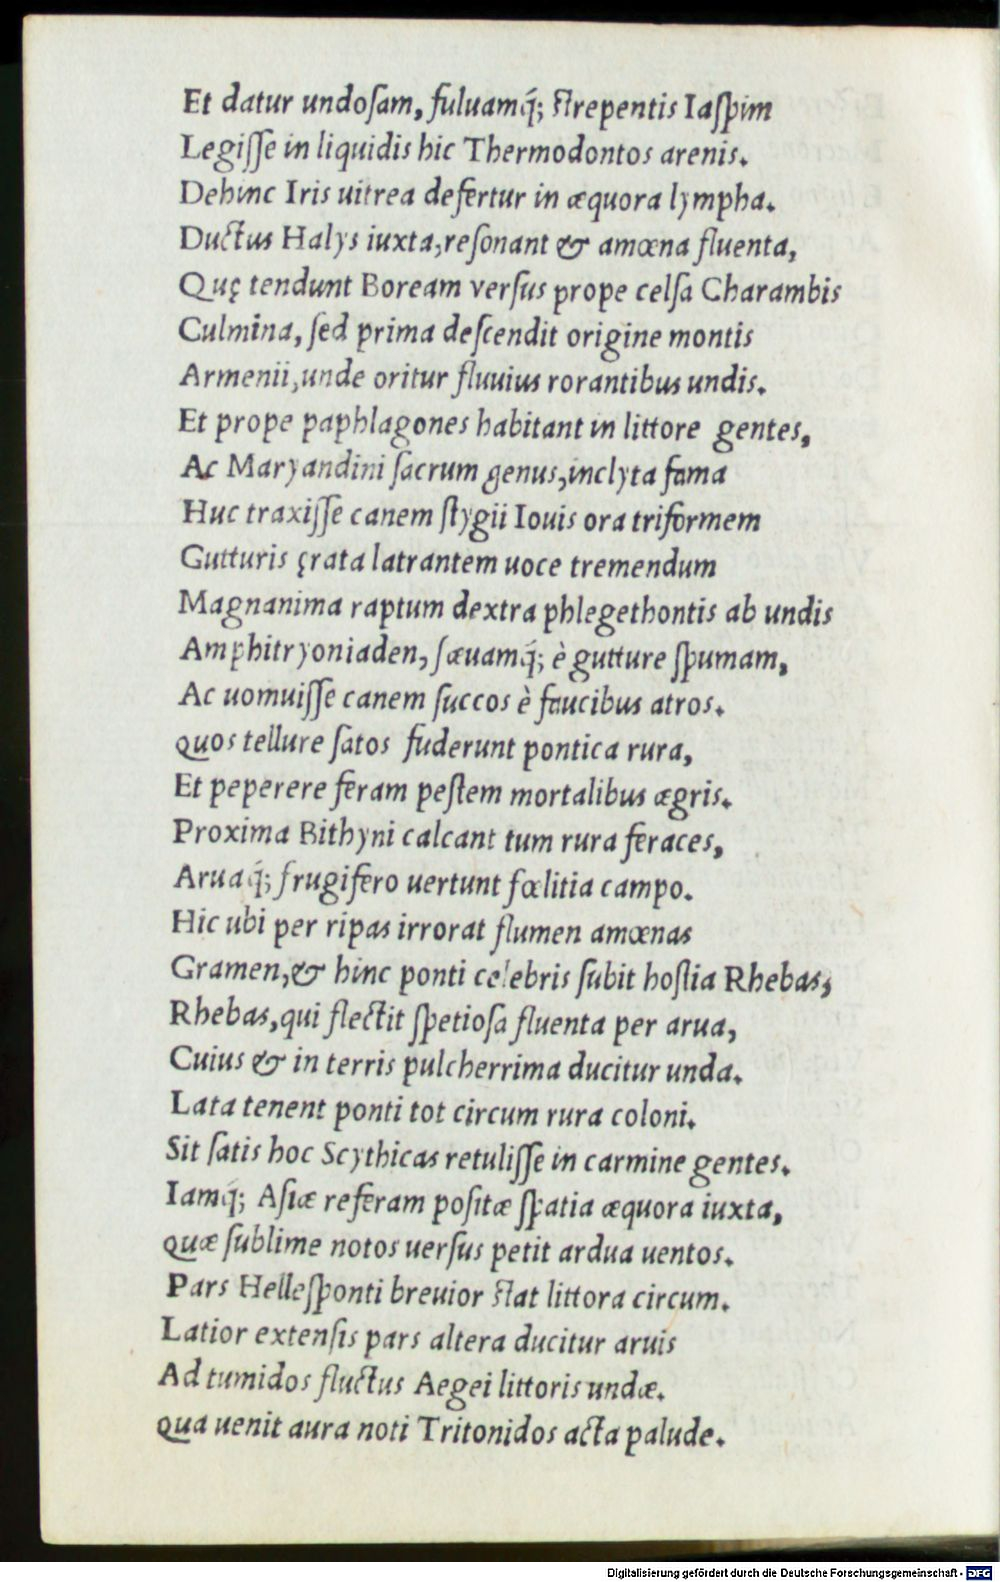 Et datur undoſam, fuluamq́; ſtrepentis Iaſpim
Legiſſe in liquidis hic Thermodontos arenis.
Dehinc Iris uitrea defertur in æquora lympha.
Ductus Halys iuxta, reſonant & amœna fluenta,
Quę tendunt Boream verſus prope celſa Charambis
Culmina, ſed prima deſcendit origine montis
Armenii, unde oritur fluuius rorantibus undis.
Et prope paphlagones habitant in littore gentes,
Ac Maryandini ſacrum genus, inclyta fama
Huc traxiſſe canem ſtygii Iouis ora triformem
Gutturis ęrata latrantem uoce tremendum
Magnanima raptum dextra phlegethontis ab undis
Amphitryoniaden, ſæuamq́; è gutture ſpumam,
Ac uomuiſſe canem ſuccos è faucibus atros.
quos tellure ſatos fuderunt pontica rura,
Et peperere feram peſtem mortalibus ægris.
Proxima Bithyni calcant tum rura feraces,
Aruaq́; frugifero uertunt fœlitia campo.
Hic ubi per ripas irrorat flumen amœnas
Gramen, & hinc ponti celebris ſubit hoſtia Rhebas,
Rhebas, qui flectit ſpetioſa fluenta per arua,
Cuius & in terris pulcherrima ducitur unda.
Lata tenent ponti tot circum rura coloni.
Sit ſatis hoc Scythicas retuliſſe in carmine gentes.
Iamq́; Aſiæ referam poſitæ ſpatia æquora iuxta,
quæ ſublime notos uerſus petit ardua uentos.
Pars Helleſponti breuior ſtat littora circum.
Latior extenſis pars altera ducitur aruis
Ad tumidos fluctus Aegei littoris undæ.
qua uenit aura noti Tritonidos acta palude.
Digitalisierung gefördert durch die Deutsche Forschungsgemeinschaft - DFG